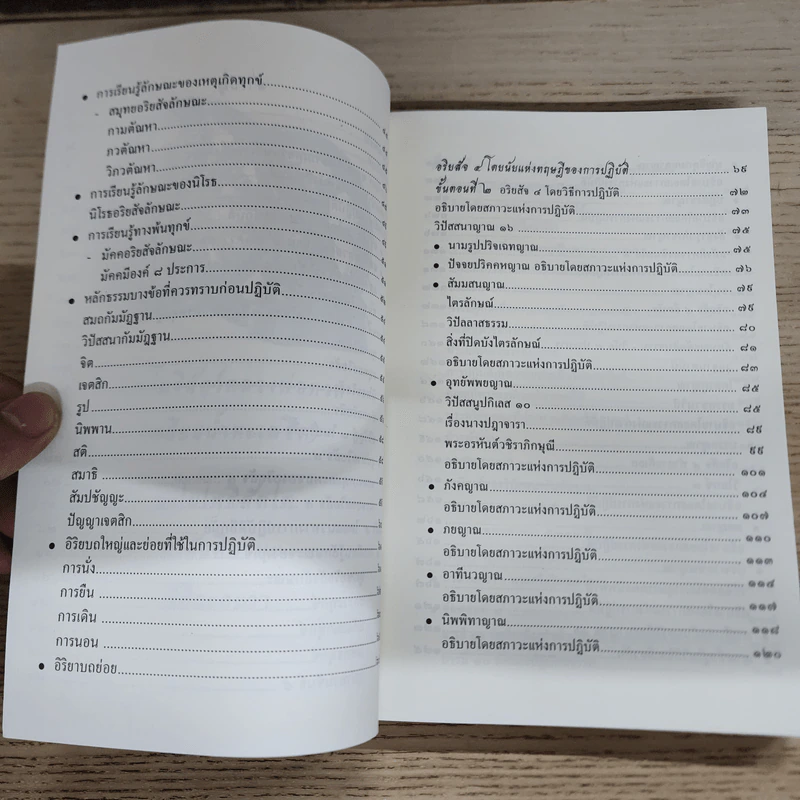 • การเรียนรู้ลักษณะของเหตุเกิดทุกข์
- สมุทยอริยสัจลักษณะ
กามตัณหา
ภวตัณหา
วิภวตัณหา
• การเรียนรู้ลักษณะของนิโรธ
นิโรธอริยสัจลักษณะ
• การเรียนรู้ทางพ้นทุกข์
- มัคคอริยสัจลักษณะ
มัคคมีองค์ ๘ ประการ
• หลักธรรมบางข้อที่ควรทราบก่อนปฏิบัติ
สมถกัมมัฏฐาน
วิปัสสนากัมมัฏฐาน
จิต
เจตสิก
รูป
นิพพาน
สติ
สมาธิ
สัมปชัญญะ
ปัญญาเจตสิก
• อิริยบถใหญ่และย่อยที่ใช้ในการปฏิบัติ
การนั่ง
การยืน
การเดิน
การนอน
• อิริยาบถย่อย
อริยสัจ ๔ โดยนัยแห่งทฤษฎีของการปฏิบัติ ๖๙
ขั้นตอนที่ ๒ อริยสัจ ๔ โดยวิธีการปฏิบัติ ๗๒
อธิบายโดยสภาวะแห่งการปฏิบัติ ๗๓
วิปัสสนาญาณ ๑๖ ๗๕
• นามรูปปริจเฉทญาณ ๗๕
• ปัจจยปริคคหญาณ อธิบายโดยสภาวะแห่งการปฏิบัติ ๗๖
• สัมมสนญาณ ๗๙
ไตรลักษณ์ ๗๙
วิปัลลาสธรรม ๘๐
สิ่งที่ปิดบังไตรลักษณ์ ๘๑
อธิบายโดยสภาวะแห่งการปฏิบัติ ๘๓
• อุทยัพพยญาณ ๘๕
วิปัสสนูปกิเลส ๑๐ ๘๕
เรื่องนางปฏาจารา ๘๙
พระอรหันต์วชิราภิกษุณี ๙๙
อธิบายโดยสภาวะแห่งการปฏิบัติ ๑๐๑
• ภังคญาณ ๑๐๔
อธิบายโดยสภาวะแห่งการปฏิบัติ ๑๐๗
• ภยญาณ ๑๑๐
อธิบายโดยสภาวะแห่งการปฏิบัติ ๑๑๓
• อาทีนวญาณ ๑๑๔
อธิบายโดยสภาวะแห่งการปฏิบัติ ๑๑๗
• นิพพิทาญาณ ๑๑๘
อธิบายโดยสภาวะแห่งการปฏิบัติ ๑๒๐